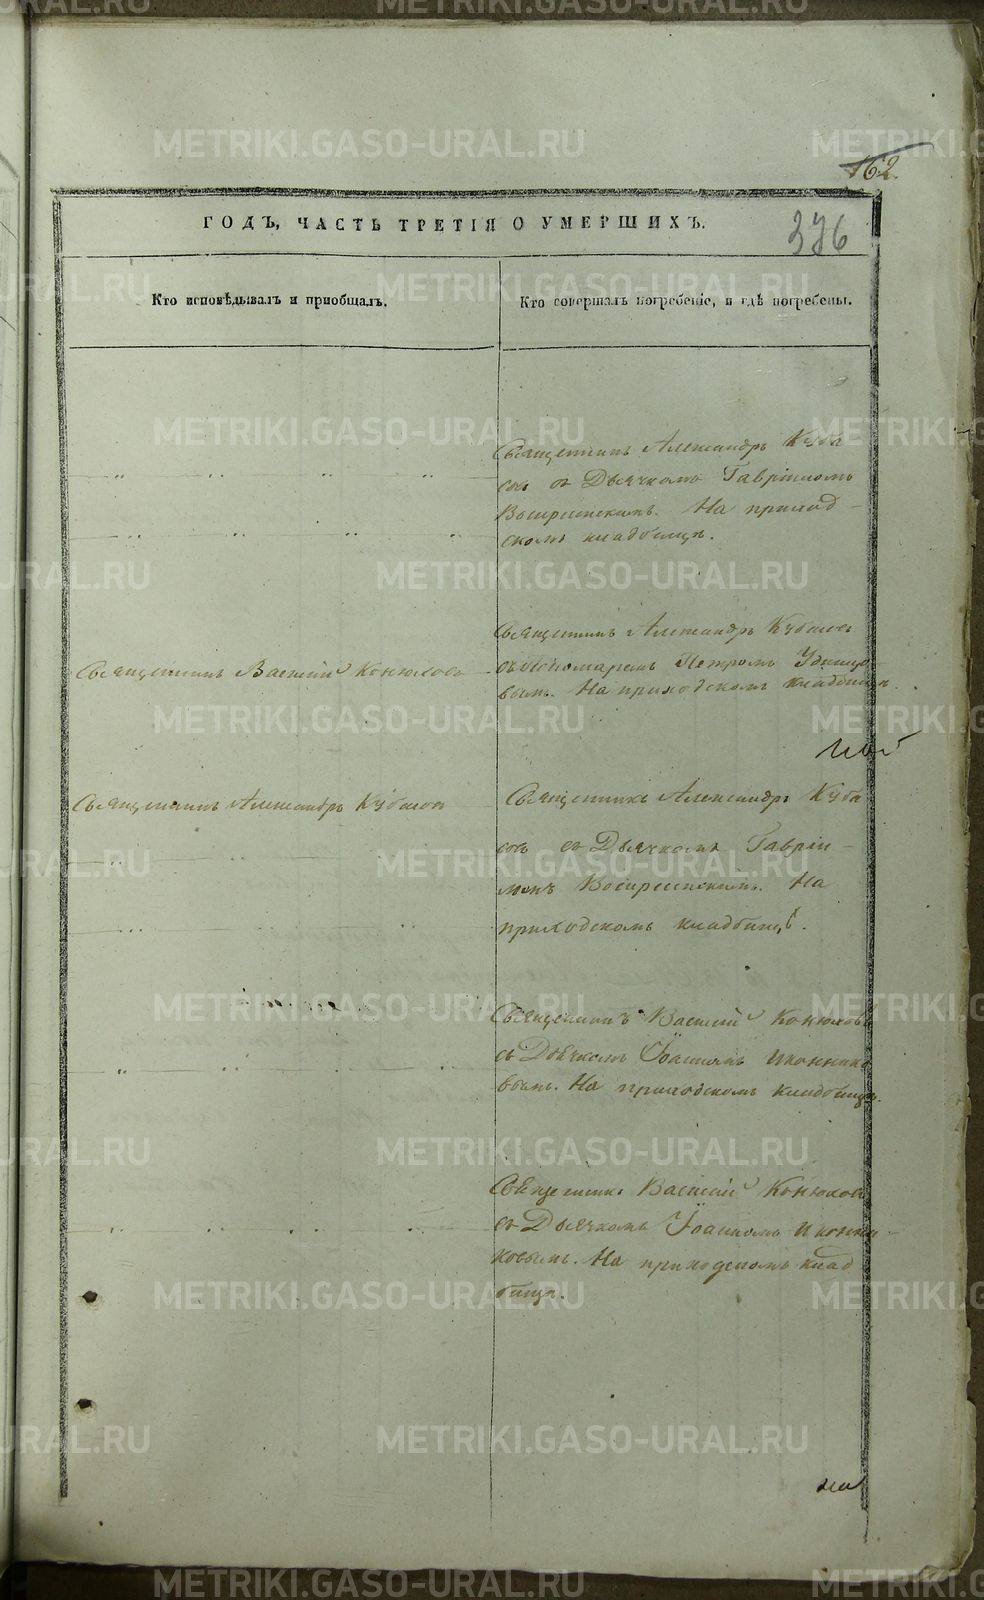 162.
ГОДЪ, ЧАСТЬ ТРЕТІЯ О УМЕРШИХЪ.
376
Кто исповѣдывалъ и пріобщалъ.
Кто совершалъ погребеніе, и гдѣ погребены.
Священникъ Александръ Куба
совъ съ Дьячкомъ Гавріиломъ
Воскресенскимъ. На приход-
скомъ кладбищѣ.
Священникъ Василій Конюховъ
Священникъ Александръ Кубасовъ
съ Пономаремъ Петромъ Удинцо
вымъ. На приходскомъ кладбищѣ
Священникъ Александръ Кубасовъ
Священникъ Александръ Куба
совъ съ Дьячкомъ Гавріи-
ломъ Воскресенскимъ. На
приходскомъ кладбищѣ.
Священникъ Василій Конюховъ
съ Дьячкомъ Іоанномъ Иконнико
вымъ. На приходскомъ кладбищѣ.
Священникъ Василій Конюховъ
съ Дьячкомъ Іоанномъ Иконни-
ковымъ. На приходскомъ клад
бищѣ.
METRIKI.GASO-URAL.RU